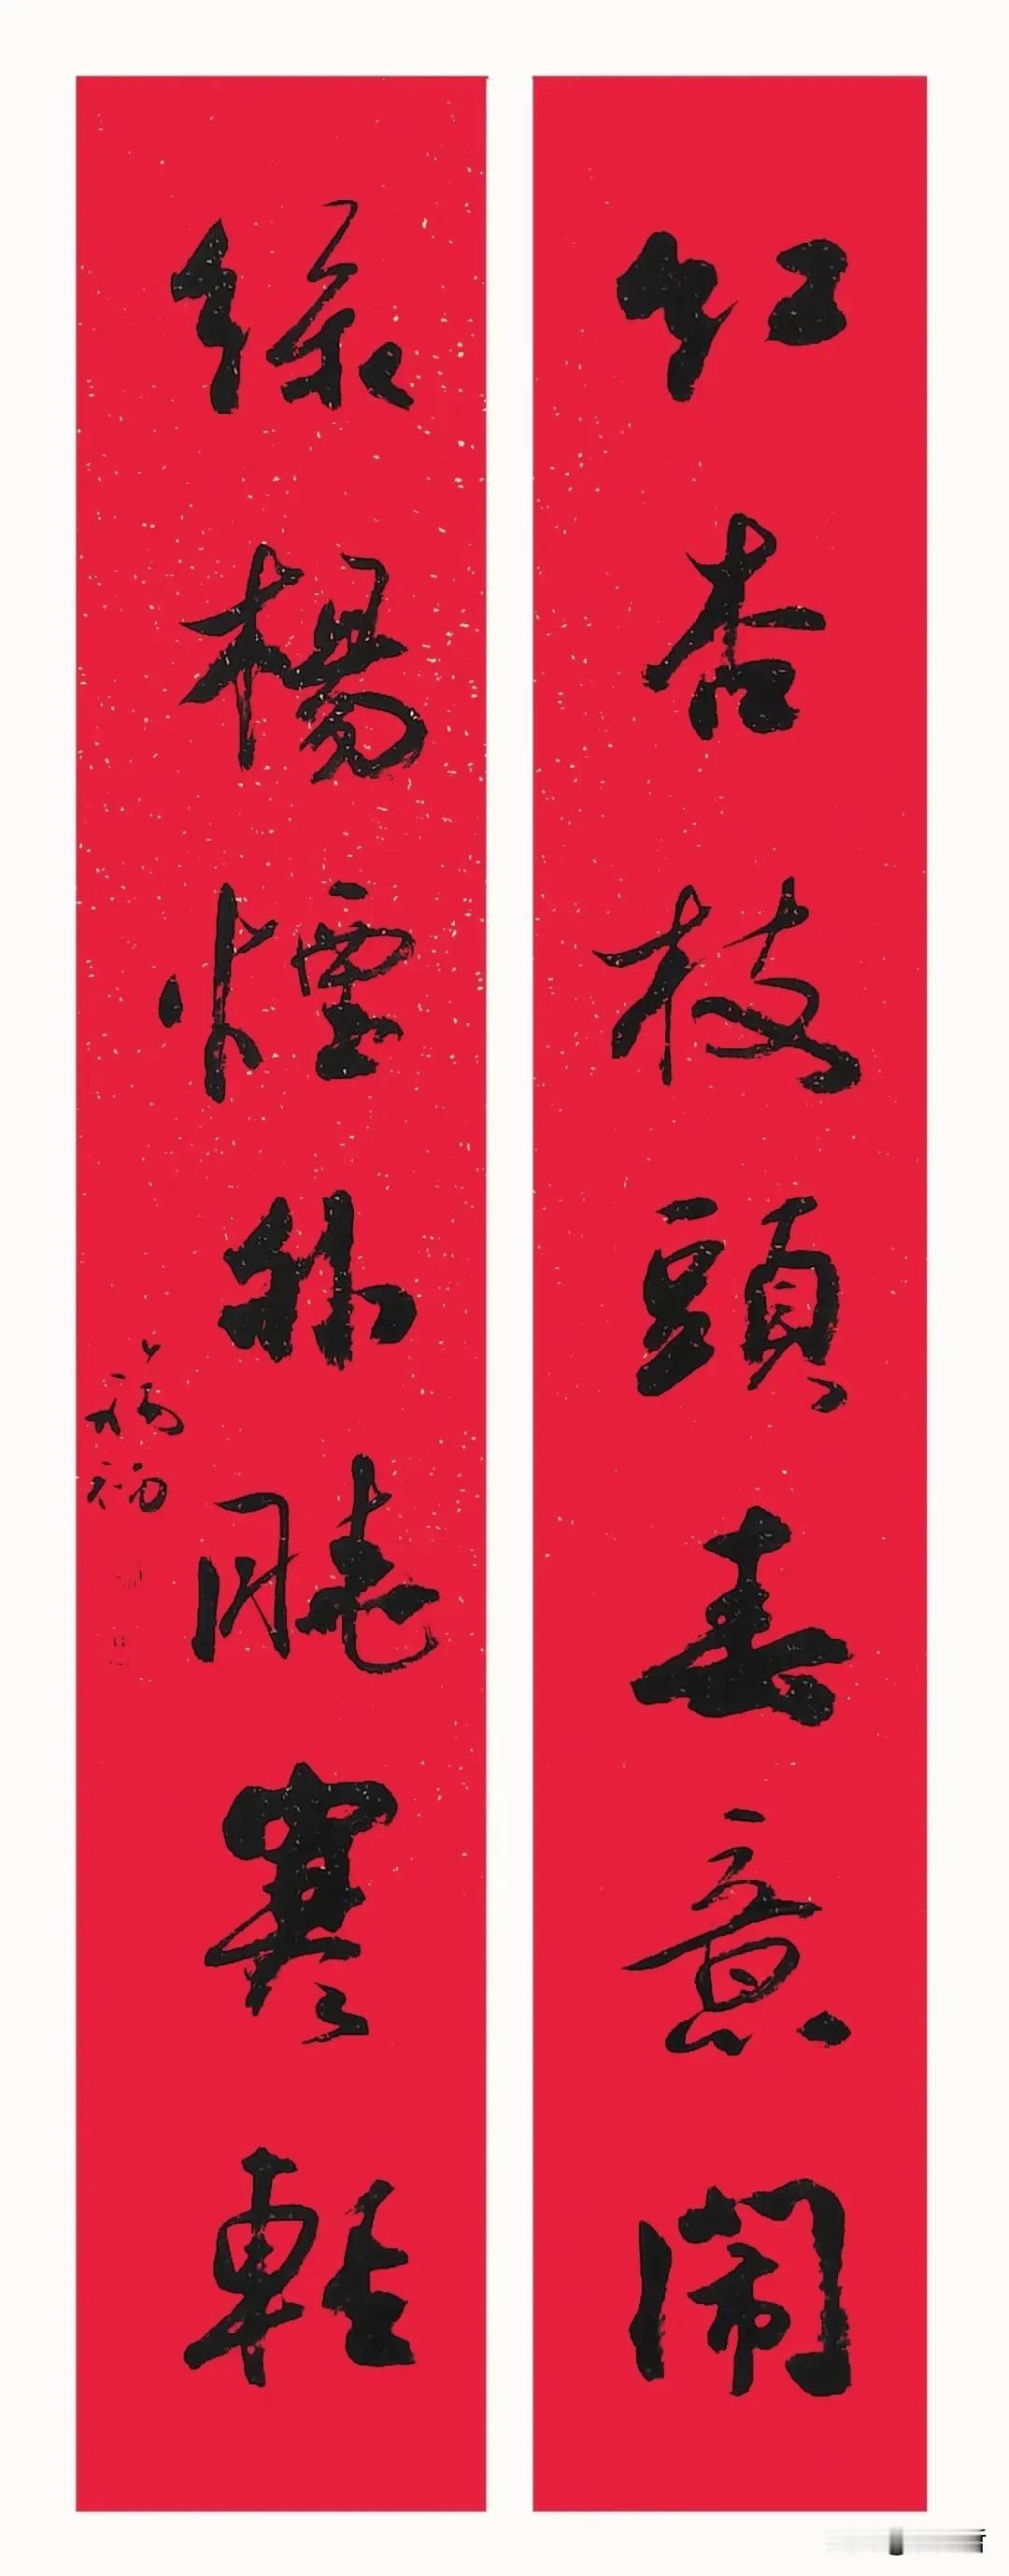 紅杏枝頭春意鬧
綠楊煙外曉寒輕